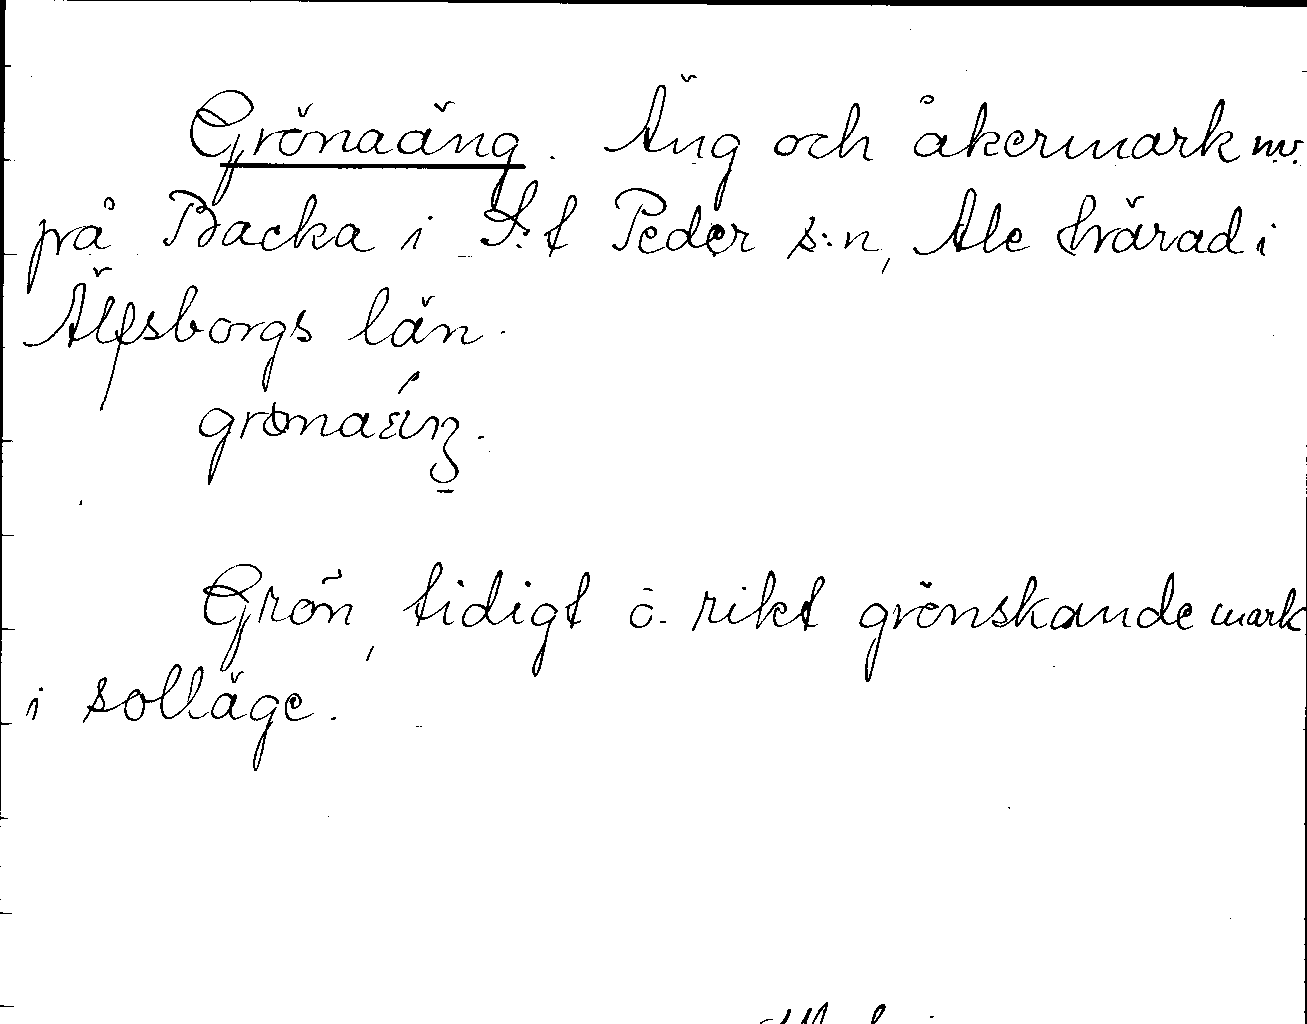 Grönaäng. Äng och åkermark nv.
på Backa i S:t Peder s:n, Ale härad i
Älfsborgs län.
Grön, tidigt o. rikt grönskande mark
i solläge.